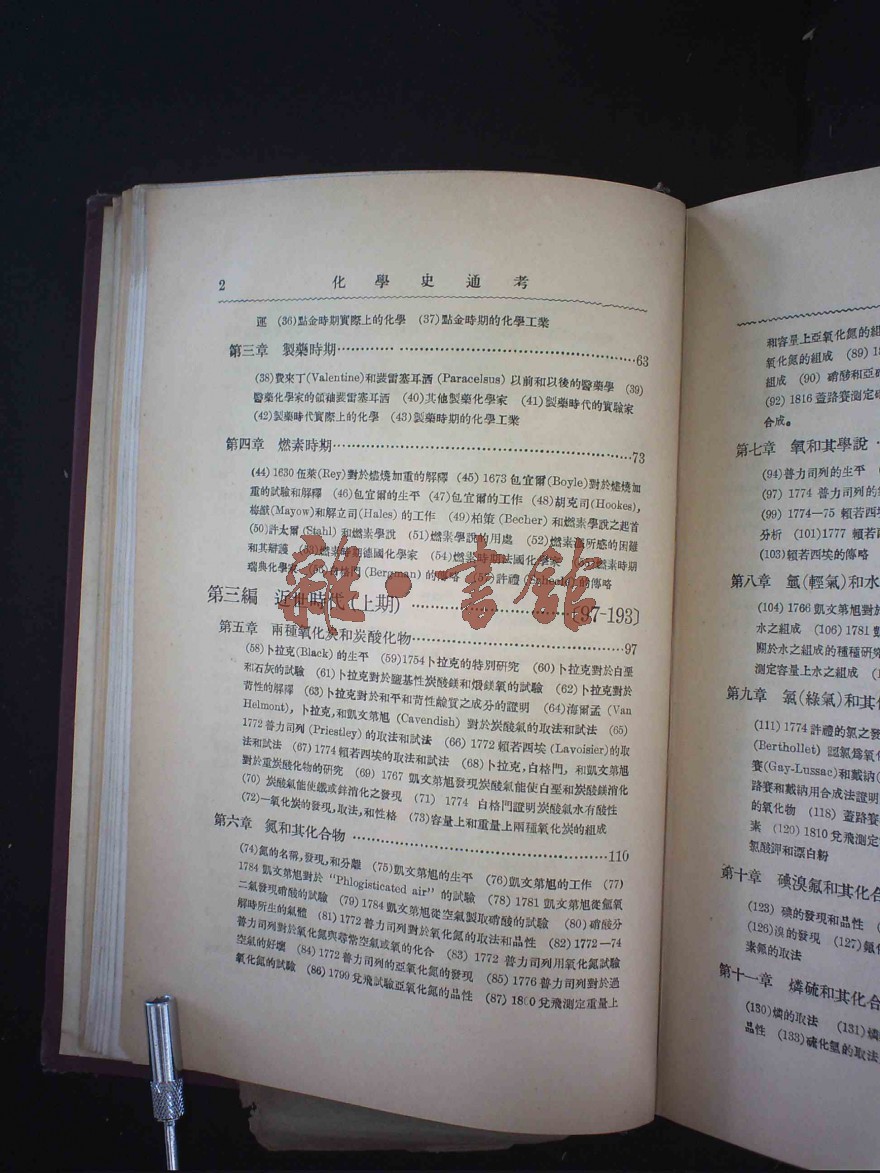 2 化學史通考
運 (36)點金時期實際上的化學 (37)點金時期的化學工業
第三章 製藥時期 63
(38)費來丁(Valentine)和裴雷塞耳洒 (Paracelsus) 以前和以後的醫藥學 (39)
醫藥化學家的領袖裴雷塞耳洒 (40)其他製藥化學家 (41)製藥時代的實驗家
(42)製藥時代實際上的化學 (43)製藥時期的化學工業
第四章 燃素時期 73
(44)1630伍萊(Rey)對於煅燒加重的解釋 (45) 1673包宜爾(Boyle)對於煅燒加
重的試驗和解釋 (46)包宜爾的生平 (47)包宜爾的工作 (48)胡克司(Hookes),
梅猷(Mayow)和解立司(Hales) 的工作 (49)柏策 (Becher) 和燃素學說之起首
(50)許太爾 (Stahl) 和燃素學說 (51)燃素學說的用處 (52)燃素 所感的困難
和其辯護 燃素時期德國化學家 (54)燃素時期法國化學家 燃素時期
瑞典化學家 (Bergman) 的傳略 許禮 的傳略
第三編 近世時代(上期) 97-193]
第五章 兩種氧化炭和炭酸化物 97
(58)卜拉克(Black)的生平 (59)1754卜拉克的特別研究 (60)卜拉克對於白堊
和石灰的試驗 (61)卜拉克對於鹽基性炭酸鎂和煅鎂氧的試驗 (62)卜拉克對於
苛性的解釋 (63)卜拉克對於和平和苛性鹼質之成分的證明 (64)海爾孟 (Van
Helmont), 卜拉克,和凱文第旭 (Cavendish) 對於炭酸氣的取法和試法 (65)
1772普力司列 (Priestley) 的取法和試法 (66) 1772 賴若西埃 (Lavoisier)的取
法和試法 (67)1774賴若西埃的取法和試法 (68)卜拉克,白格門, 和凱文第旭
對於重炭酸化物的研究 (69) 1767 凱文第旭發現炭酸氣能使白堊和炭酸鎂消化
(70) 炭酸氣能使鐵或鋅消化之發現 (71) 1774 白格門證明炭酸氣水有酸性
(72)一氧化炭的發現,取法,和性格 (73)容量上和重量上兩種氧化炭的組成
第六章 氮和其化合物 110
(74)氮的名稱,發現,和分離 (75)凱文第旭的生平 (76)凱文第旭的工作 (77)
1784 凱文第旭對於 “Phlogisticated air” 的試驗 (78) 1781 凱文第旭從氫氧
二氣發現硝酸的試驗 (79) 1784凱文第旭從空氣製取硝酸的試驗 (80)硝酸分
解時所生的氣體 (81) 1772普力司列對於氧化氮的取法和品性 (82) 1772—74
普力司列對於氧化氮與尋常空氣或氧的化合 (83) 1772 普力司列用氧化氮試驗
空氣的好壞 (84) 1772普力司列的亞氧化氮的發現 (85) 1776普力司列對於過
氧化氮的試驗 (86) 1799兌飛試驗亞氧化氮的品性 (87) 1800兌飛測定重量上
和容量上亞氧化氮的組
氧化氮的組成 (89)
組成 (90) 硝酸和亞
(92) 1816 蓋路賽測定
合成。
第七章 氧和其學說
(94)普力司列的生平
(97) 1774 普力司列的
(99) 1774—75 賴若西
分析 (101)1777 賴若西
(103)賴若西埃的傳略
第八章 氫(輕氣)和水
(104) 1766 凱文第旭對於
水之組成 (106) 1781
關於水之組成的種種研究
測定容量上水之組成
第九章 氯(綠氣)和其
(111) 1774 許禮的氯之發
(Berthollet) 認氯爲氧化
賽(Gay-Lussac)和戴納
路賽和戴納用合成法證明
的氧化物 (118) 蓋路賽
素 (120) 1810 兌飛測定
氯酸鉀和漂白粉
第十章 碘溴氟和其化合
(123) 碘的發現和品性
(126)溴的發現 (127)氟化
素氟的取法
第十一章 燐硫和其化合
(130)燐的取法 (131)燐
品性 (133)硫化氫的取法
雜·書館